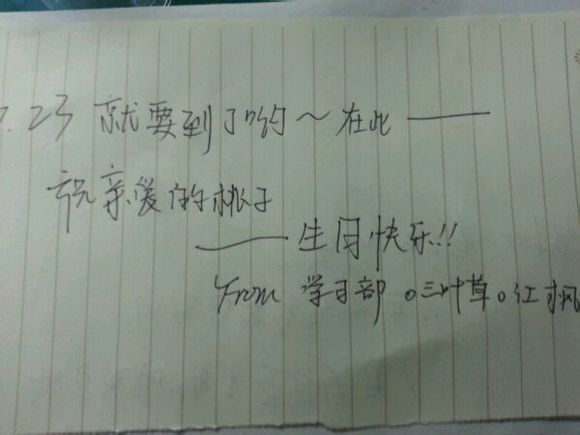 .23 就要到了哟~在此——
祝亲爱的桃子
——生日快乐!!
From 学习部 。三叶草。红枫